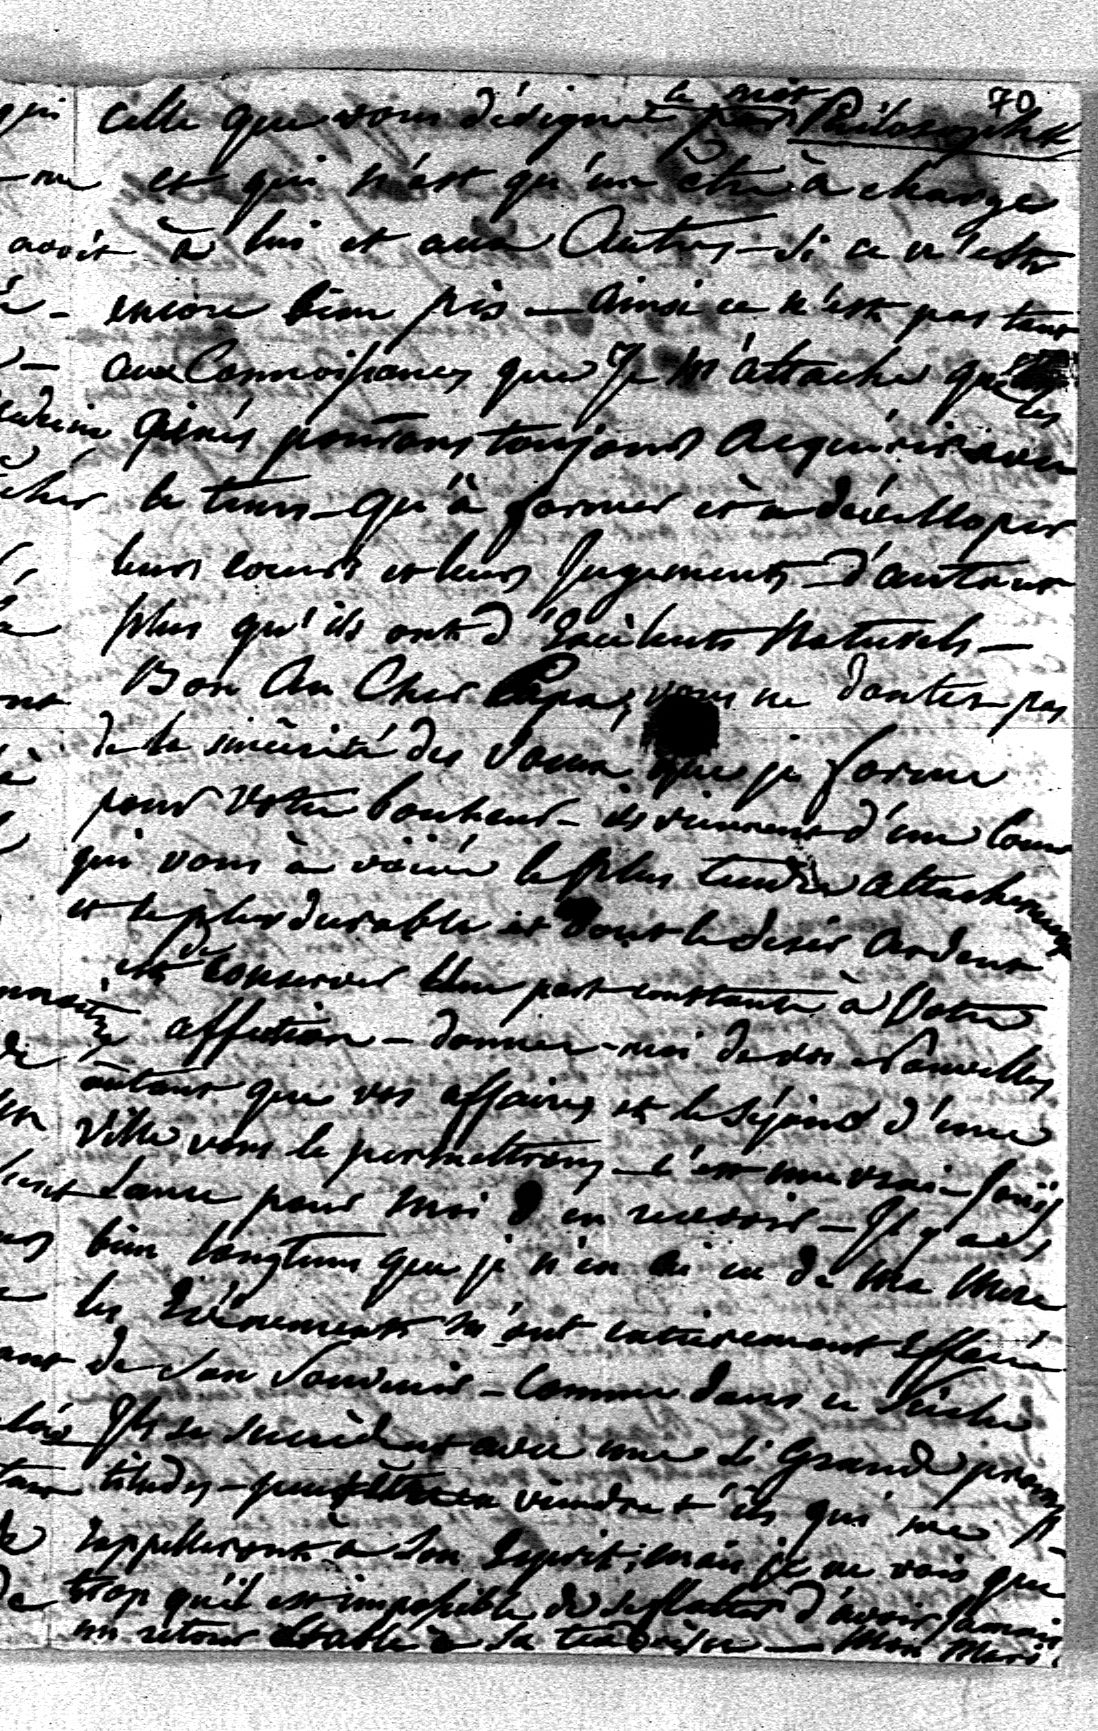 70
celle que vous désigne le mot Philosophe
et qui n'est qu'un etre à charge
à lui et aux Autres – si ce n'est
encore bien pis – ainsi ce n'est pas tant
aux Connoissances que Je M'attache
ainés pourons toujours acquérir avec
le tems – qu'à former et à dévelloper
leurs coeurs et leurs Jugements – d'autant
plus qu'ils ont d'Excellents Naturels –
Bon An Cher Papa, vous ne doutes pas
de la sincérité des Voeux que je forme
pour Votre bonheur – ils viennent d'un Coeur
qui vous à voüé le plus tendre attachement
et le plus durable et dont le desir ardent
est de conserver Une part constante à Votre
affection – donnez-moi de vos Nouvelles
autant que vos affaires et le Séjour d'une
Ville vous le permettrons – c'est une vraie Jouïs
sance pour Moi d'en recevoir – Il y a
bien longtems que je n'en ai eu de Ma Mere
les Evénements m'ont entierement Effacée
de Son Souvenir – Comme dans ce Siecle
Ils se succèdent avec une si Grande promp
titudes – peut être en viendra t'ils qui me
rappelleront à Son Esprit; mais je ne vois que
trop qu'il est impossible de se flatter d'avoir Jamais
un retour stable à sa tendresse – Mon Mari